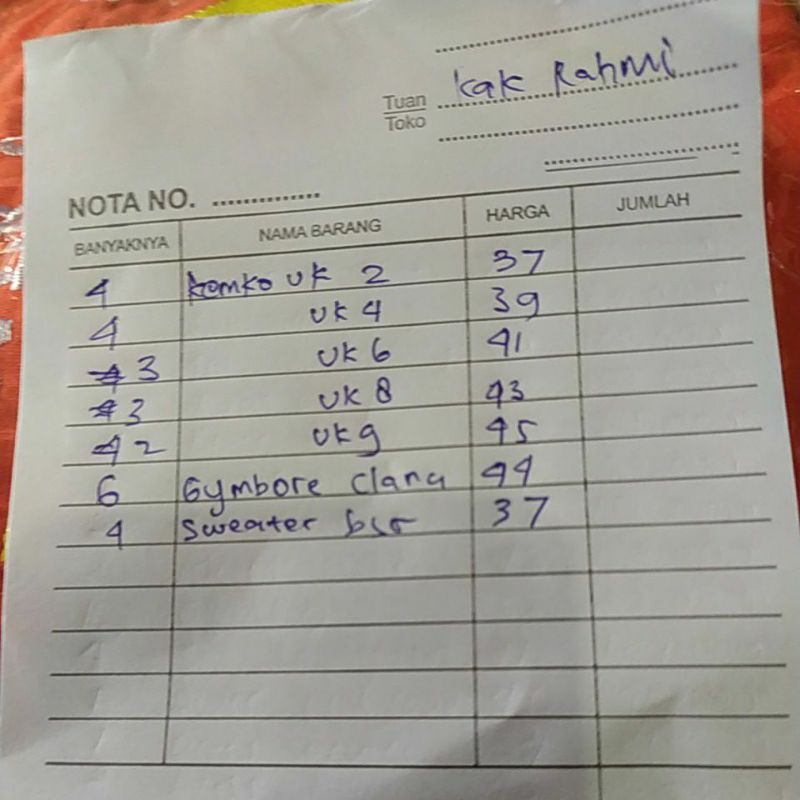 Kak Rahmi
Tuan
Toko
NOTA NO. ..............
BANYAKNYA NAMA BARANG HARGA JUMLAH
4 komko uk 2 37
4 uk 4 39
3 uk 6 41
3 uk 8 43
2 uk 9 45
6 Gymbore clana 44
4 sweater bsr 37